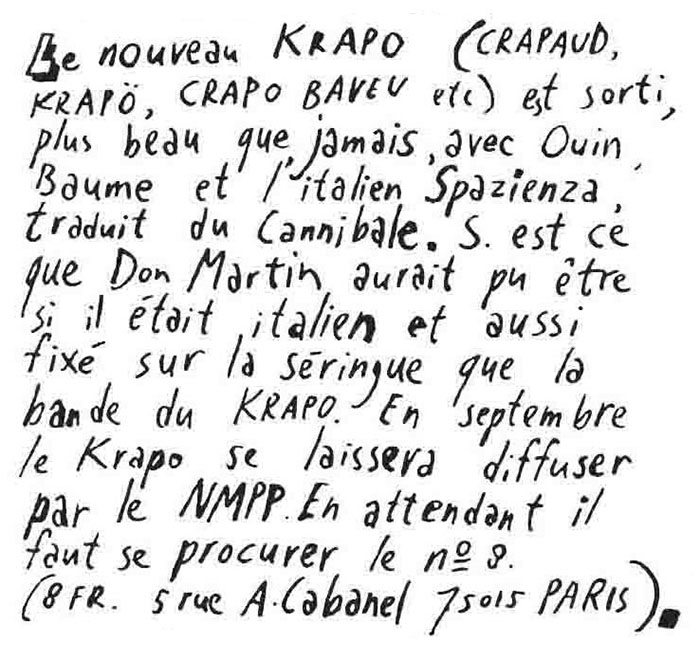 Le nouveau KRAPO (CRAPAUD,
KRAPÖ, CRAPO BAVEU etc) est sorti,
plus beau que jamais, avec Ouin,
Baume et l'italien Spazienza,
traduit du Cannibale. S. est ce
que Don Martin aurait pu être
si il était italien et aussi
fixé sur la séringue que la
bande du KRAPO. En septembre
le Krapo se laissera diffuser
par le NMPP. En attendant il
faut se procurer le nº 8.
(8 FR. 5 rue A. Cabanel 75015 PARIS).